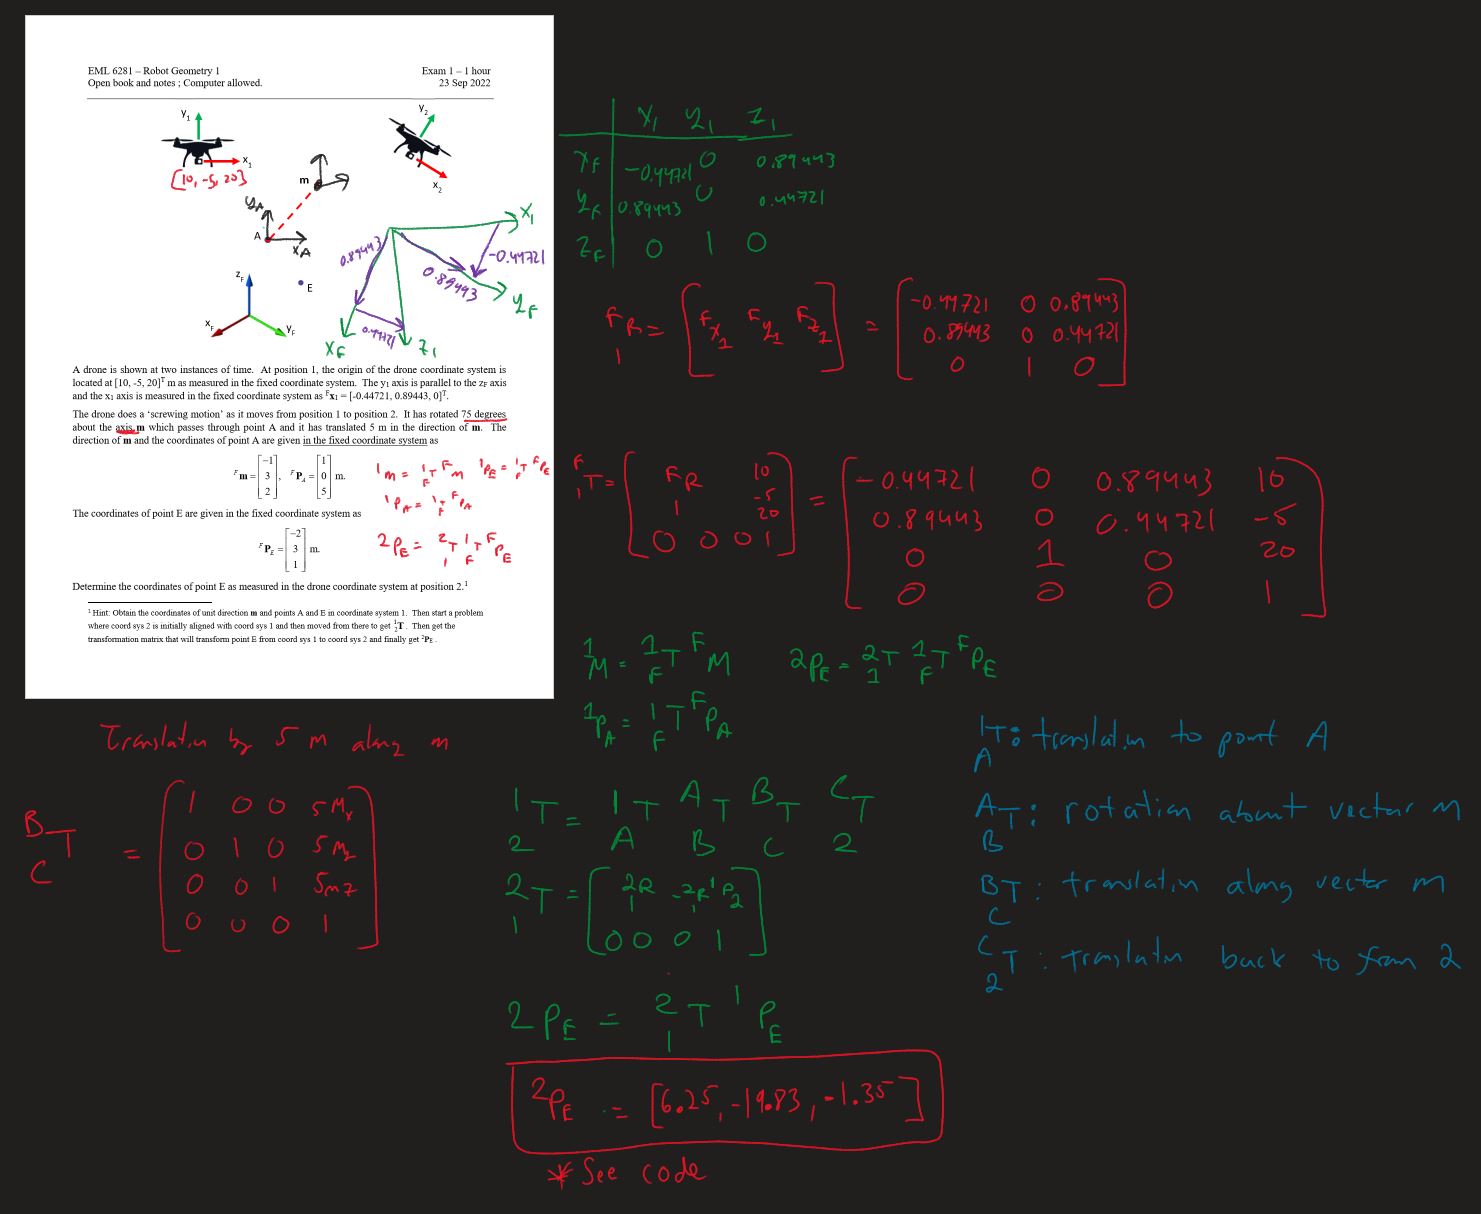 EML 6281 – Robot Geometry 1
Exam 1 – 1 hour
Open book and notes ; Computer allowed.
23 Sep 2022
y1
x1
[10, -5, 20]
y2
x2
m
yA
A
xA
E
zF
xF
yF
x1
0.89443
-0.44721
0.89443
yF
0.44721
xF
z1
A drone is shown at two instances of time. At position 1, the origin of the drone coordinate system is
located at [10, -5, 20]T m as measured in the fixed coordinate system. The y1 axis is parallel to the zF axis
and the x1 axis is measured in the fixed coordinate system as Fx1 = [-0.44721, 0.89443, 0]T.
The drone does a ‘screwing motion’ as it moves from position 1 to position 2. It has rotated 75 degrees
about the axis m which passes through point A and it has translated 5 m in the direction of m. The
direction of m and the coordinates of point A are given in the fixed coordinate system as
Fm = [-1 3 2], FPA = [1 0 5] m.
1m = 1FT Fm 1PE = 1FT FPE
1PA = 1FT FPA
The coordinates of point E are given in the fixed coordinate system as
FPE = [-2 3 1] m.
2PE = 21T 1FT FPE
Determine the coordinates of point E as measured in the drone coordinate system at position 2.1
1 Hint: Obtain the coordinates of unit direction m and points A and E in coordinate system 1. Then start a problem
where coord sys 2 is initially aligned with coord sys 1 and then moved from there to get 12T. Then get the
transformation matrix that will transform point E from coord sys 1 to coord sys 2 and finally get 2PE .
x1 y1 z1
xF -0.44721 0 0.89443
yF 0.89443 0 0.44721
zF 0 1 0
F1R = [Fx1 Fy1 Fz1] = [-0.44721 0 0.89443
0.89443 0 0.44721
0 1 0]
F1T = [F1R 10 -5 20
0 0 0 1] = [-0.44721 0 0.89443 10
0.89443 0 0.44721 -5
0 1 0 20
0 0 0 1]
1M = 1FT FM 2PE = 21T 1FT FPE
1PA = 1FT FPA
12T = 1AT ABT BCT C2T
21T = [21R -21R 1P2
0 0 0 1]
2PE = 21T 1PE
2PE = [6.25, -19.83, -1.35]
* See code
Translation by 5 m along m
BCT = [1 0 0 5Mx
0 1 0 5My
0 0 1 5mz
0 0 0 1]
1AT: translation to point A
ABT: rotation about vector m
BCT: translation along vector m
C2T: translation back to from 2